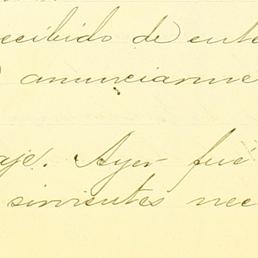 recibido de ente
anunciarme
aje. Ayer fué
sirvientes nec